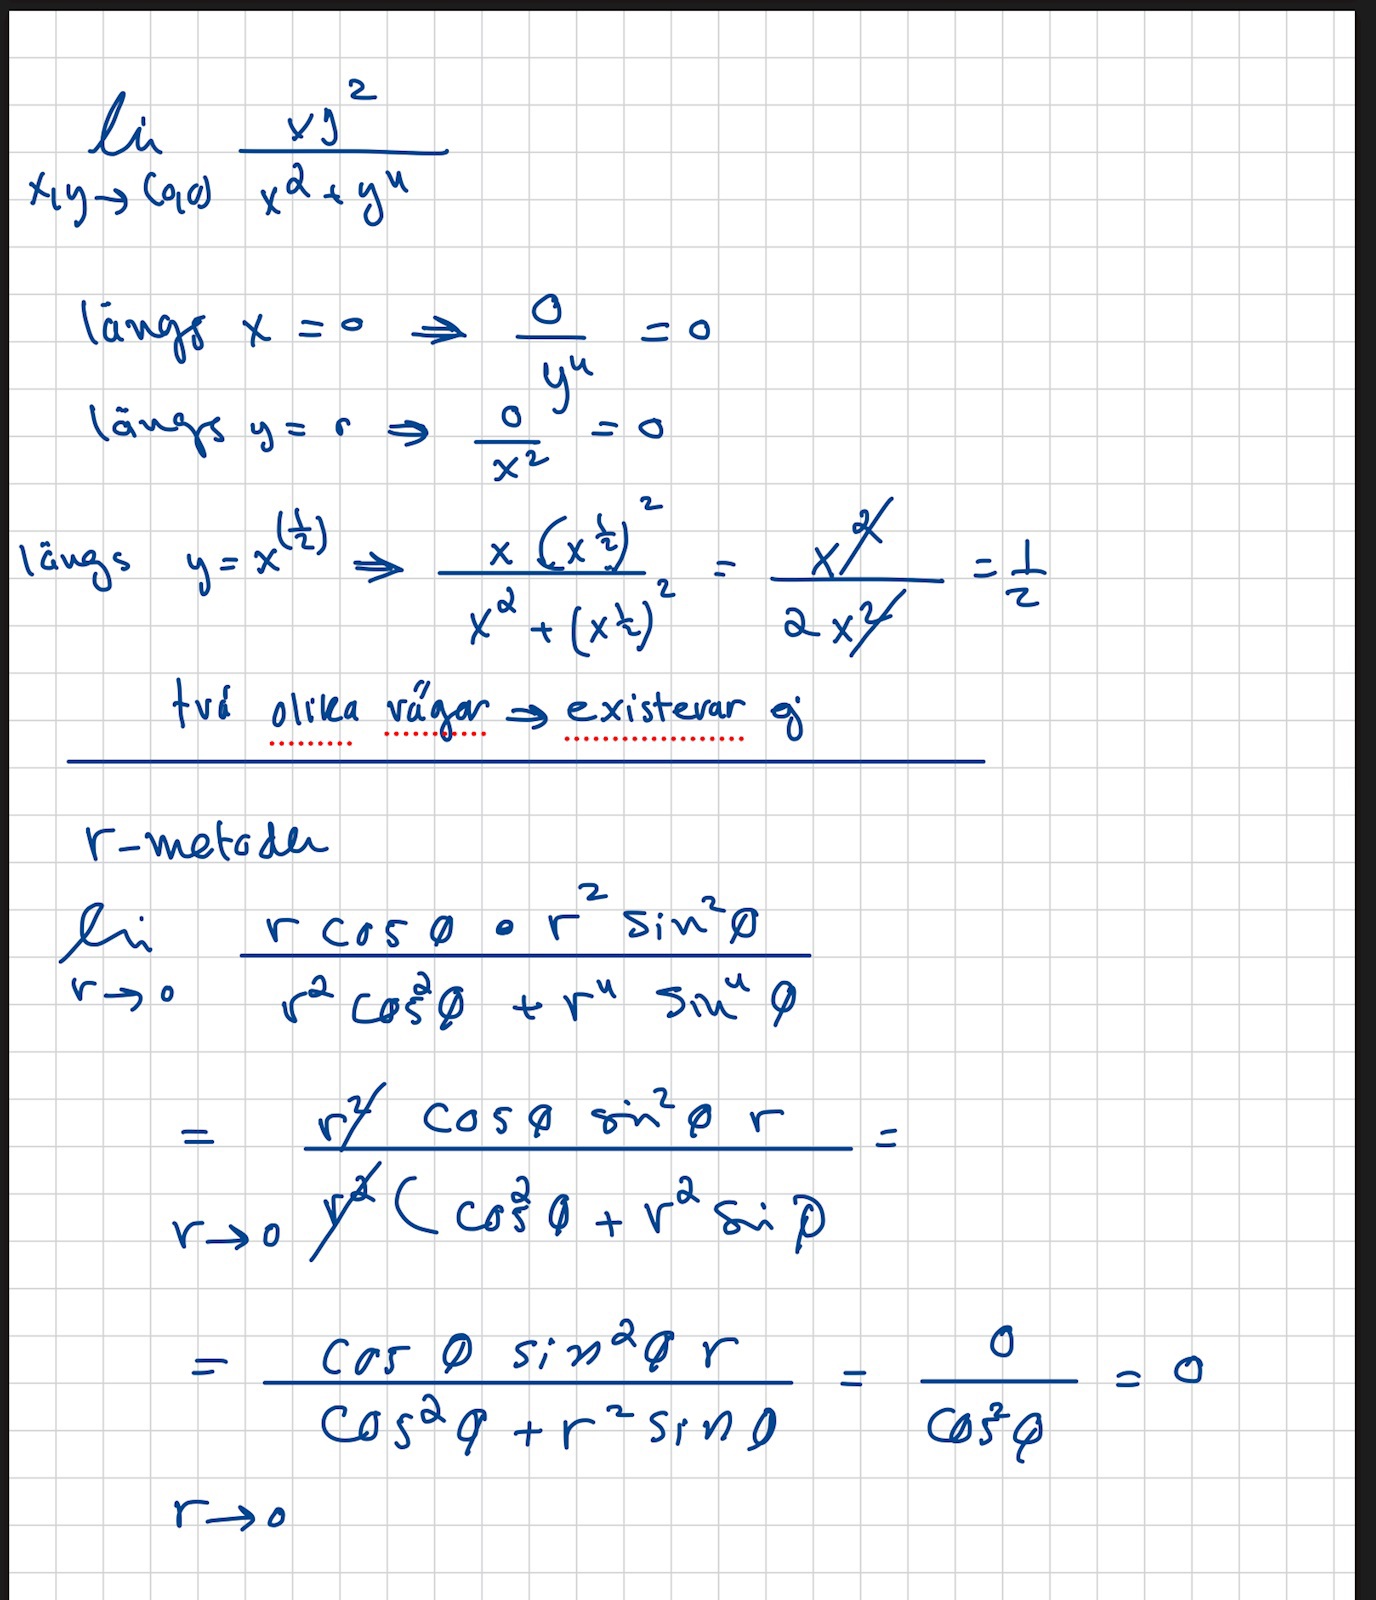 lim xy²
x,y→(0,0) x²+y⁴
längs x = 0 ⇒ 0/y⁴ = 0
längs y = 0 ⇒ 0/x² = 0
längs y = x^(1/2) ⇒ x(x^½)² / x²+(x^½)² = x²/2x² = 1/2
två olika vägar ⇒ existerar ej
r-metoden
lim r cos ø • r² sin²ø
r→0 r² cos²ø + r⁴ sin⁴ ø
= r² cosø sin²ø r =
r→0 r²(cos²ø + r² sin ø
= cos ø sin²ø r / cos²ø + r² sin ø = 0/cos²ø = 0
r→0